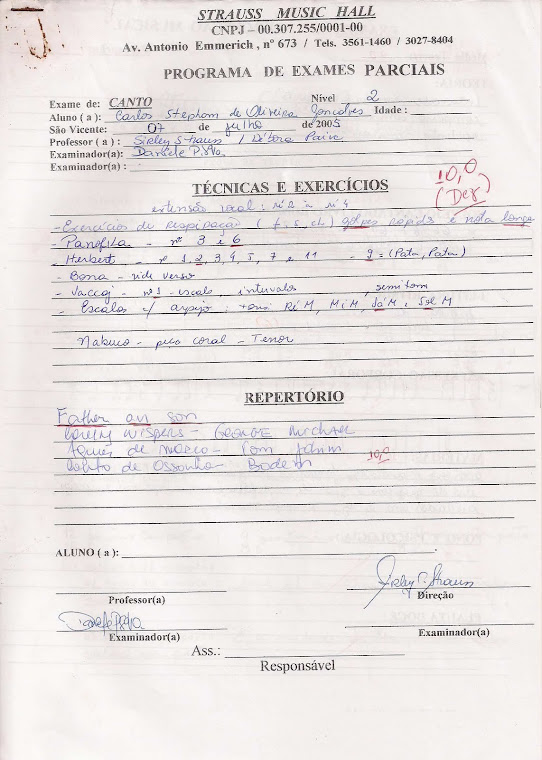 STRAUSS MUSIC HALL
CNPJ – 00.307.255/0001-00
Av. Antonio Emmerich , nº 673 / Tels. 3561-1460 / 3027-8404
PROGRAMA DE EXAMES PARCIAIS
Exame de: CANTO Nível 2
Aluno ( a ) : Carlos Stephom de Oliveira Goncalves Idade :
São Vicente: 07 de julho de 2005
Professor ( a ) : Sirley Strauss / Débora Paiva
Examinador(a): Daniele
Examinador(a) :
10,0
(Dez)
TÉCNICAS E EXERCÍCIOS
extensão vocal :
- Exercícios de respiração ( f, s, ch) golpes rápido e nota longa
- Panofka - nº 3 e 6
- Herbert - nº 1, 2, 3, 4, 5, 7 e 11 - 9 = (Pata, Pata)
- Bona - vide verso
- Vaccaj - nº 1 - escala intervalos semitom
- Escalas c/ arpejo : tons RéM, MiM, FáM, Sol M
Nabuco - peça coral - Tenor
REPERTÓRIO
Father an son
Wispers - GEORGE MICHAEL
Águas de março - Tom Jobim
Canto de Ossanha - Baden 10,0
ALUNO ( a ):
Sirley P. Strauss
Professor(a) Direção
Examinador(a) Examinador(a)
Ass.:
Responsável